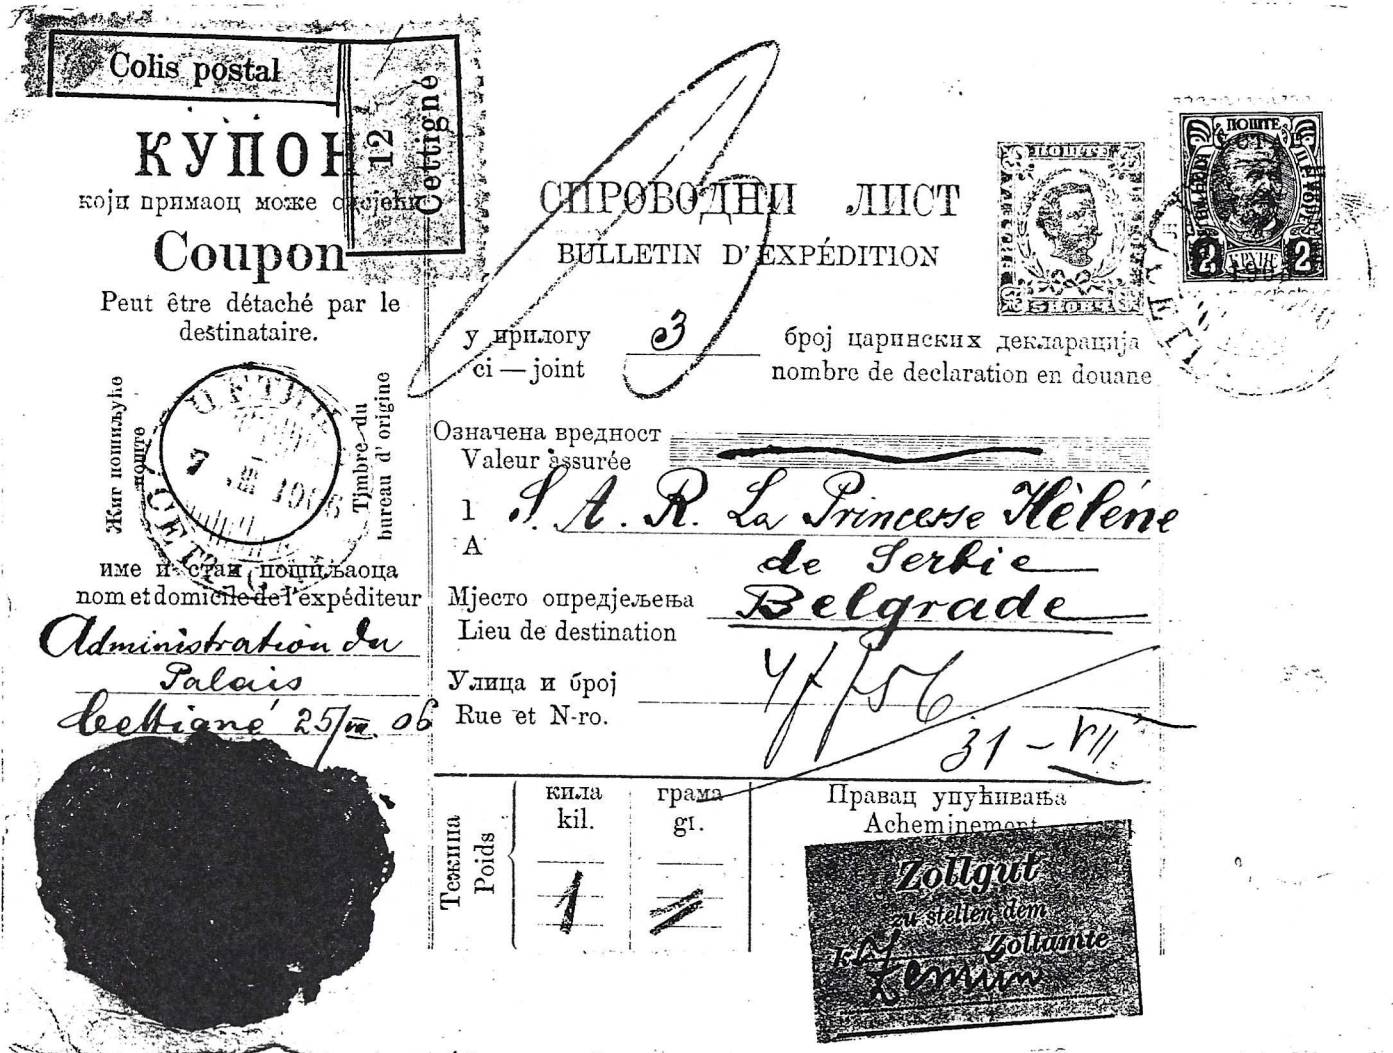 Colis postal
12
Cettigné
КУПОН
који примаоц може
Coupon
Peut être détaché par le
destinataire.
Жиг пошиљуће
поште
Timbre du
bureau d'origine
1906
име и стан пошиљаоца
nom et domicile de l'expéditeur
Administration du
Palais
Cettigné 25/VII. 06
СПРОВОДНИ ЛИСТ
BULLETIN D'EXPÉDITION
у прилогу
ci — joint
3
број царинских декларација
nombre de declaration en douane
ПОШТЕ
ПОШТЕ
2 2
Означена вредност
Valeur assurée
1 S. A. R. La Princesse Hélène
A
de Serbie
Мјесто опредјељења
Lieu de destination
Belgrade
Улица и број
Rue et N-ro.
31 - VII
Тежина
Poids
кила
kil.
1
грама
gr.
Правац упућивања
Acheminement
Zollgut
zu stellen dem
k. Zollamte
Zemun